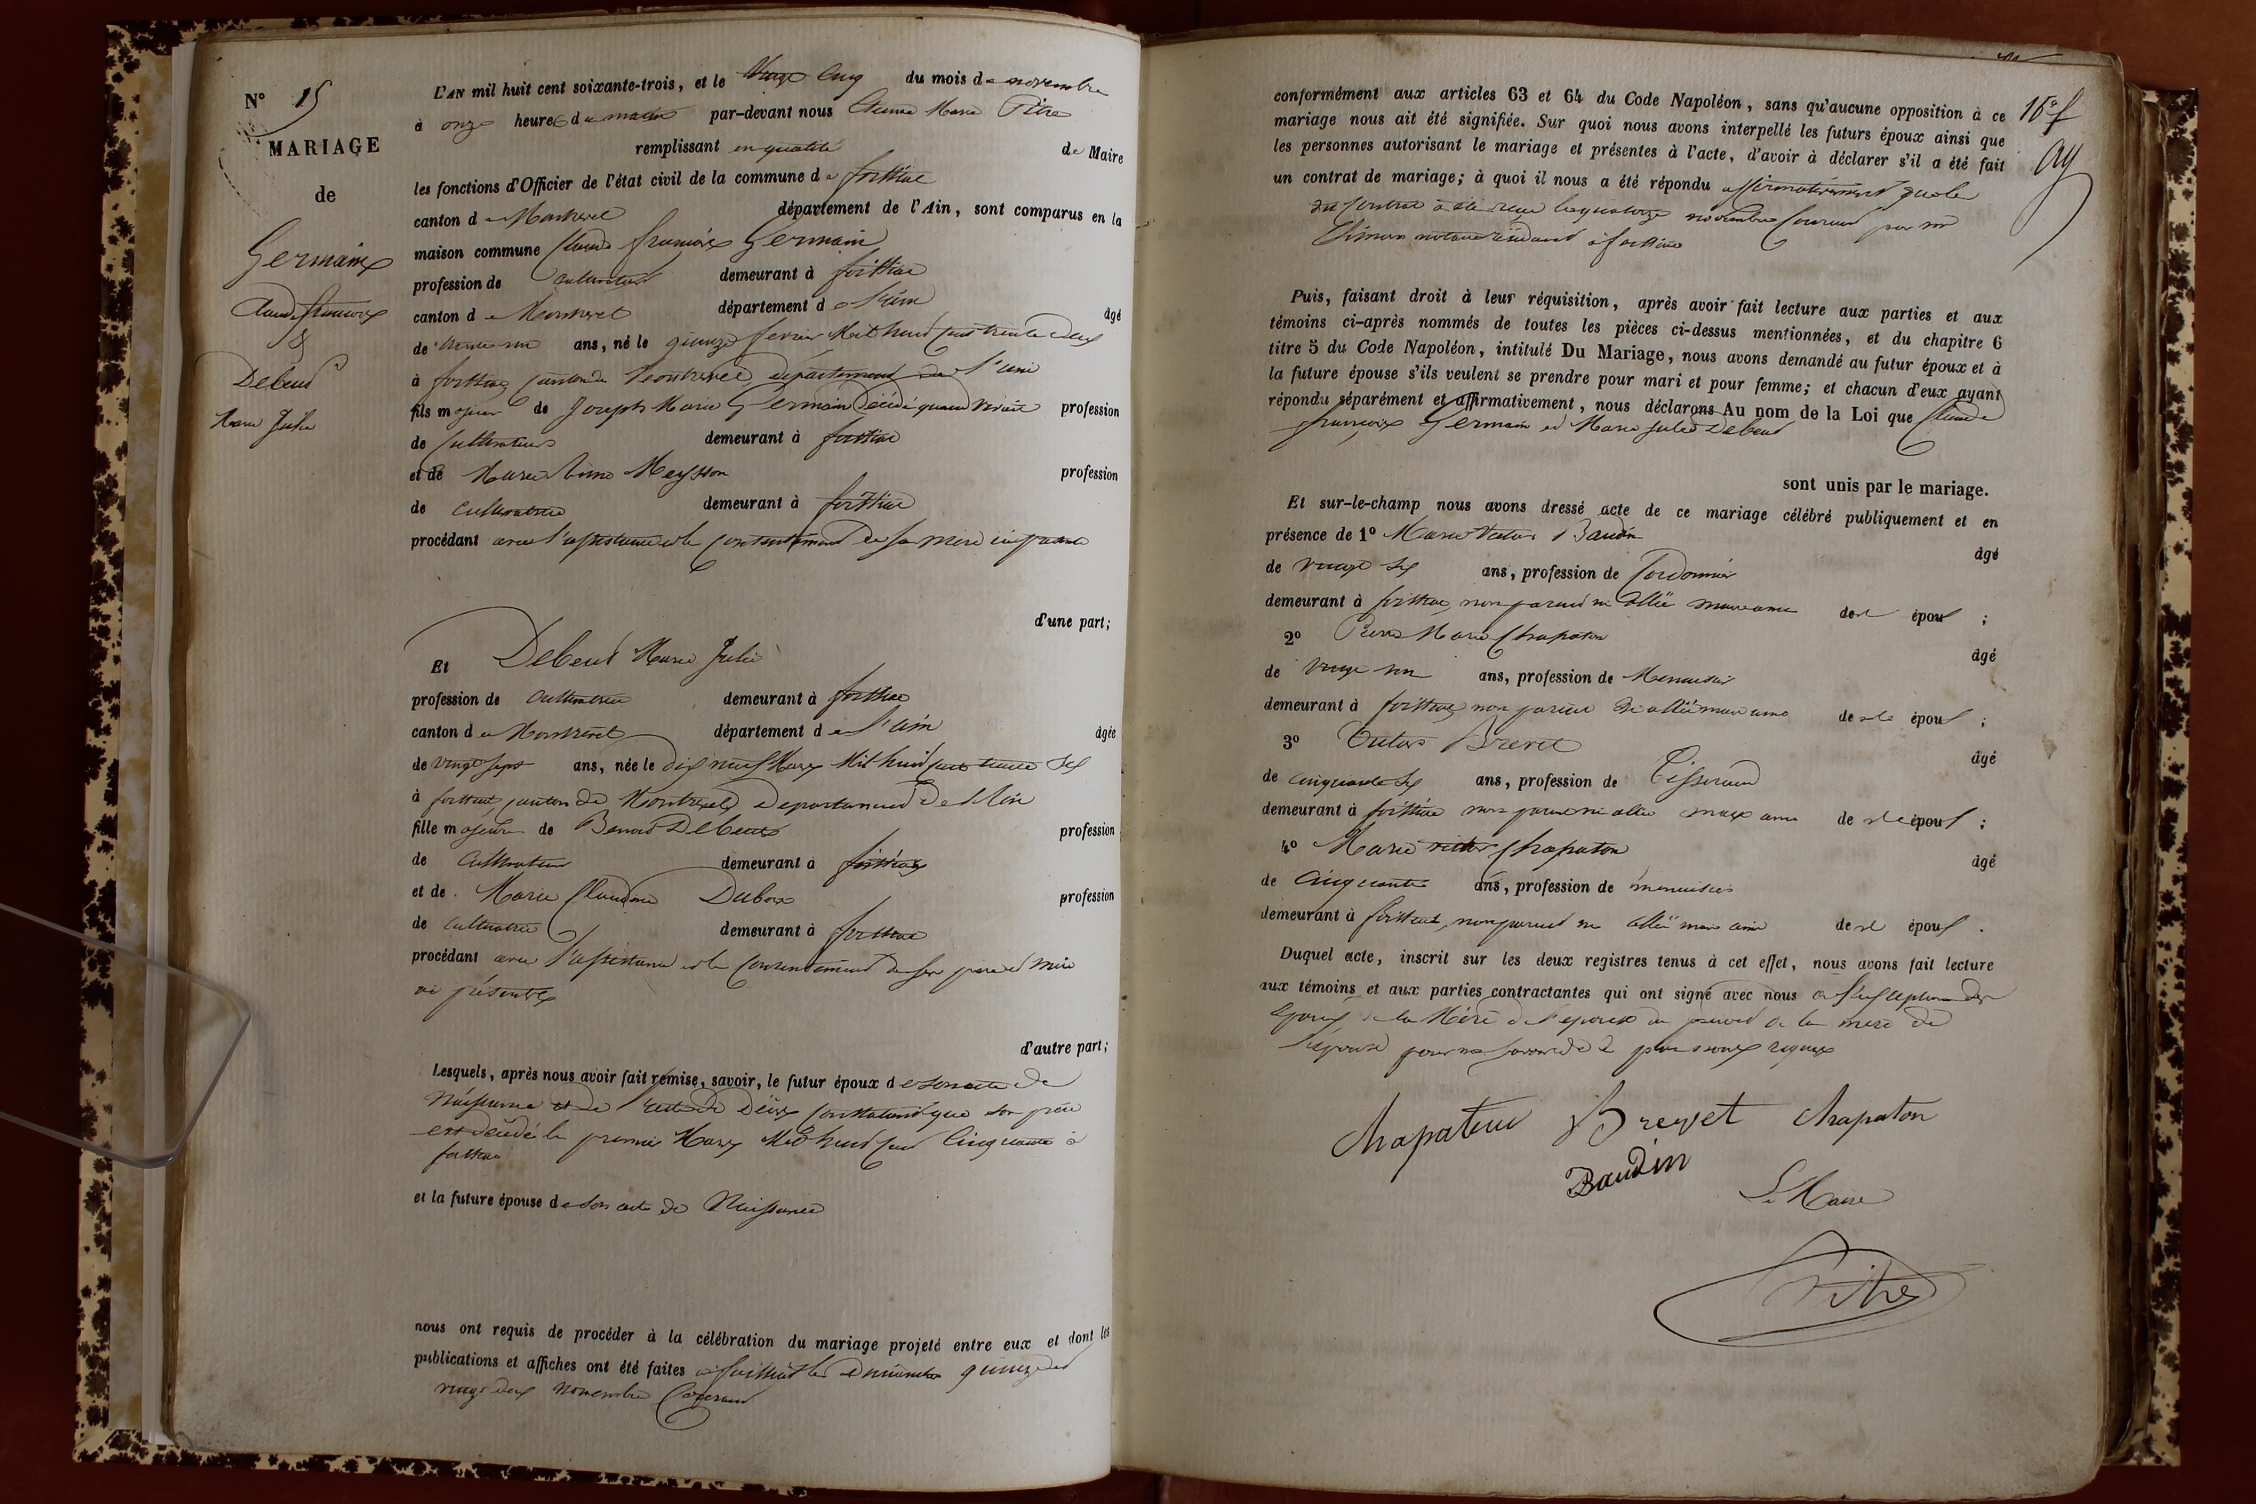 N° 15
MARIAGE
de
Germain
Claude françois
&
Debeud
Marie Julie
L'AN mil huit cent soixante-trois, et le Vingt Cinq du mois de novembre
à onze heures du matin par-devant nous Etienne Marie Pitre
remplissant en qualité de Maire
les fonctions d'Officier de l'état civil de la commune de foissiat
canton de Montrevel département de l'Ain, sont comparus en la
maison commune Claude françois Germain
profession de cultivateur demeurant à foissiat
canton de Montrevel département de l'ain âgé
de trente un ans, né le quinze fevrier Mil huit cent trente deux
à foissiat canton de Montrevel département de l'ain
fils majeur de Joseph Marie Germain Décédé quand vivait profession
de Cultivateur demeurant à foissiat
et de Marie Meysson profession
de cultivatrice demeurant à foissiat
procédant avec l'assistance et le consentement de sa mère ici présente
d'une part;
Et Debeud Marie Julie
profession de cultivatrice demeurant à foissiat
canton de Montrevel département de l'ain âgée
de vingt sept ans, née le dix neuf Mars Mil huit cent trente six
à foissiat canton de Montrevel département de l'Ain
fille majeure de Benoit Debeud profession
de Cultivateur demeurant à foissiat
et de Marie Claudine Dubois profession
de cultivatrice demeurant à foissiat
procédant avec l'assistance et le consentement de ses père et mère
ici présents
d'autre part;
Lesquels, après nous avoir fait remise, savoir, le futur époux de son acte de
Naissance et de l'acte de Décès constatant que son père
est décédé le premier Mars Mil huit cent Cinquante à
foissiat
et la future épouse de son acte de Naissance
nous ont requis de procéder à la célébration du mariage projeté entre eux et dont les
publications et affiches ont été faites à foissiat les dimanches quinze et
vingt deux novembre Courant
16e f
conformément aux articles 63 et 64 du Code Napoléon, sans qu'aucune opposition à ce
mariage nous ait été signifiée. Sur quoi nous avons interpellé les futurs époux ainsi que
les personnes autorisant le mariage et présentes à l'acte, d'avoir à déclarer s'il a été fait
un contrat de mariage; à quoi il nous a été répondu affirmativement que le
dit Contrat a été reçu le quatorze novembre Courant par
notaire résidant à foissiat
Puis, faisant droit à leur réquisition, après avoir fait lecture aux parties et aux
témoins ci-après nommés de toutes les pièces ci-dessus mentionnées, et du chapitre 6
titre 5 du Code Napoléon, intitulé Du Mariage, nous avons demandé au futur époux et à
la future épouse s'ils veulent se prendre pour mari et pour femme; et chacun d'eux ayant
répondu séparément et affirmativement, nous déclarons Au nom de la Loi que Claude
françois Germain et Marie Julie Debeud
sont unis par le mariage.
Et sur-le-champ nous avons dressé acte de ce mariage célébré publiquement et en
présence de 1° Marie Baudin âgé
de vingt six ans, profession de Cordonnier
demeurant à foissiat non parent ni allié mais ami de l'époux;
2° Pierre Marie Chapaton âgé
de vingt un ans, profession de Menuisier
demeurant à foissiat non parent ni allié mais ami de l'époux;
3° Brevet âgé
de cinquante six ans, profession de Tisserand
demeurant à foissiat non parent ni allié mais ami de l'époux;
4° Marie Chapaton âgé
de Cinquante ans, profession de menuisier
demeurant à foissiat non parent ni allié mais ami de l'époux.
Duquel acte, inscrit sur les deux registres tenus à cet effet, nous avons fait lecture
aux témoins et aux parties contractantes qui ont signé avec nous à l'exception des
époux de la Mère de l'époux du père et de la mère de
l'épouse pour ne savoir de ce par nous requis
Chapaton Brevet Chapaton
Baudin
Le Maire
Pitre